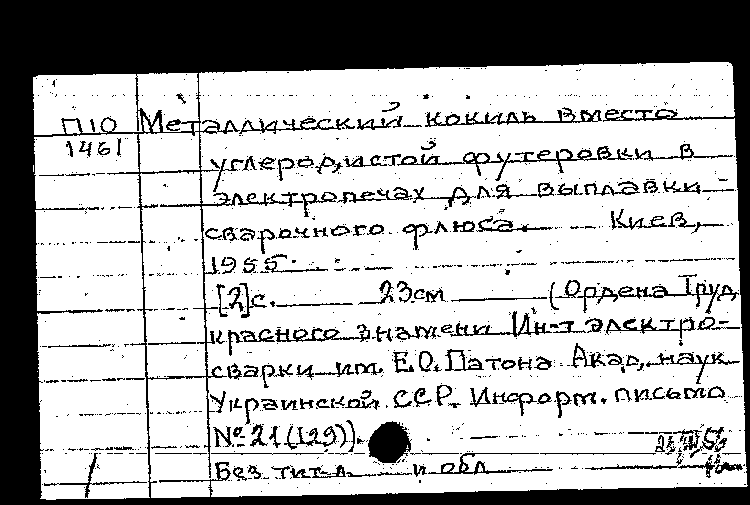 П10 Металлический кокиль вместо
1461 углеродистой футеровки в
электропечах для выплавки
сварочного флюса. Киев,
1955.
[2]с. 23см (Ордена Труд.
красного знамени Ин-т электро-
сварки им. Е.О. Патона Акад. наук
Украинской ССР. Информ. письмо
№ 21 (129)).
Без тит. л. и обл